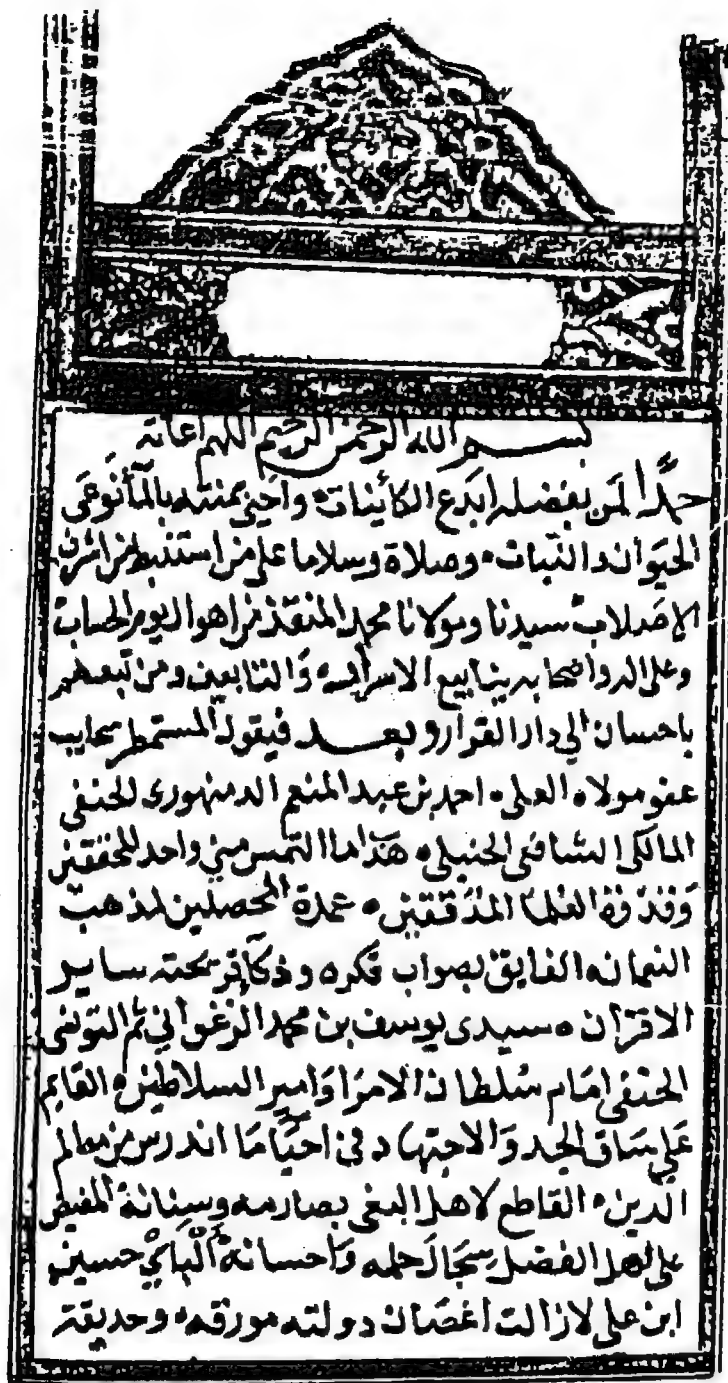 بسم الله الرحمن الرحيم اللهم اعانة
حمدا لمن بفضله ابدع الكائينات واحيى بمنته بالماء نوعى
الحيوان والنبات وصلاة وسلاما على من استنبط من اشرف
الاصلاب سيدنا ومولانا محمد المنقذ من اهوال يوم الحساب
وعلى اله واصحابه ينابيع الاسرار والتابعين ومن تبعهم
باحسان الي دار القرار وبعد فيقول المستمطر سحايب
عفو مولاه العلى احمد بن عبد المنعم الدمنهورى الحنفى
المالكى الشافعى الحنبلى هذا ما التمس مني واحد المحققين
وقدوة العلما المدققين عمدة المحصلين لمذهب
النعمان الفايق بصواب فكره وذكا قريحته ساير
الاقران سيدى يوسف بن محمد الزغواني ثم التونسى
الحنفى امام سلطان الامرا وامير السلاطين القايم
على ساق الجد والاجتهاد فى احيا ما اندرس من معالم
الدين القاطع لاهل البغى بصارمه وسنانه المفيض
على اهل الفضل سجال حلمه واحسانه الباي حسين
ابن على لازالت اغصان دولته مورقه وحديقة